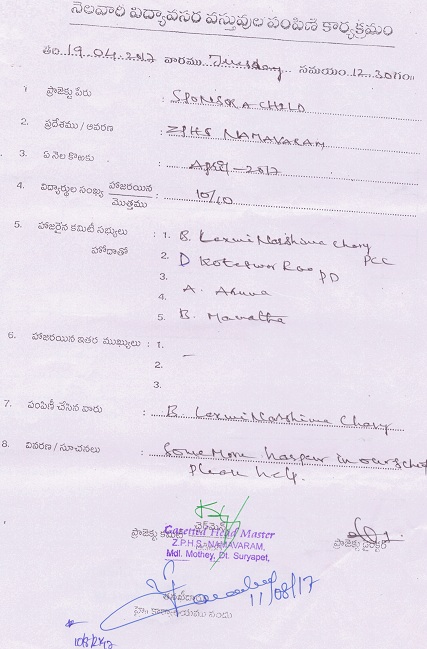 నెలవారి విద్యావసర వస్తువుల పంపిణి కార్యక్రమం
తేది 19.04.2017 వారము సమయం 12.30గం॥
1 ప్రాజెక్టు పేరు : SPONSOR A CHILD
2. ప్రదేశము / ఆవరణ : ZPHS NAMAVARAM
3. ఏ నెల కొఱకు : April - 2017
4. విద్యార్థుల సంఖ్య హాజరయిన / మొత్తము : 10/10
5. హాజరైన కమిటీ సభ్యులు : 1. B. Laxmi Narshima Chary PCC
హోదాతో 2. D Koteswar Rao PD
3.
4. A. Aruna
5. B. Mamatha
6. హాజరయిన ఇతర ముఖ్యులు : 1. –
2.
3.
7. పంపిణీ చేసిన వారు : B. Laxmi Narshima Chary
8. వివరణ / సూచనలు : Some More in our school
Please help.
చైర్మెన్
ప్రాజెక్టు కమిటీ
ప్రాజెక్టు డైరెక్టర్
Gazetted Head Master
Z.P.H.S. NAMAVARAM,
Mdl. Mothey, Dt. Suryapet,
11/08/17